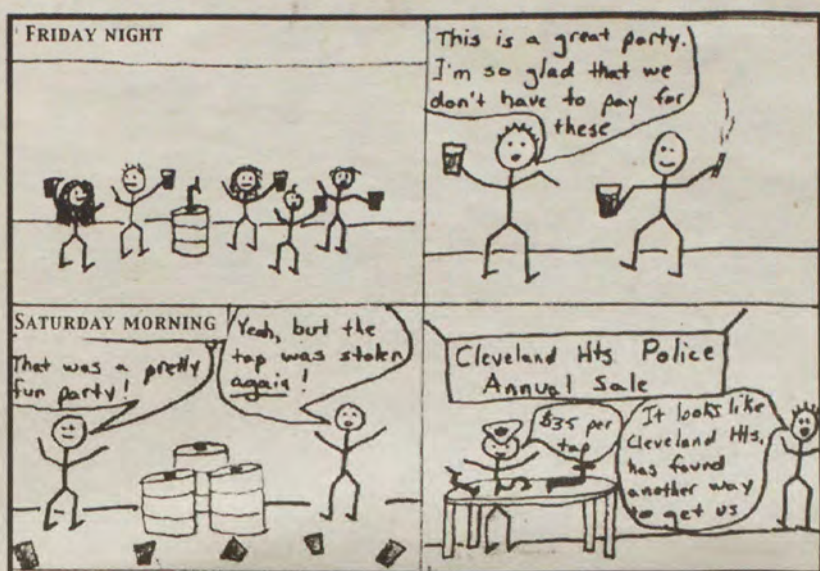 FRIDAY NIGHT
This is a great party.
I'm so glad that we
don't have to pay for
these
SATURDAY MORNING
That was a pretty
fun party!
Yeah, but the
tap was stolen
again!
Cleveland Hts Police
Annual Sale
$35 per
tap
It looks like
Cleveland Hts,
has found
another way
to get us